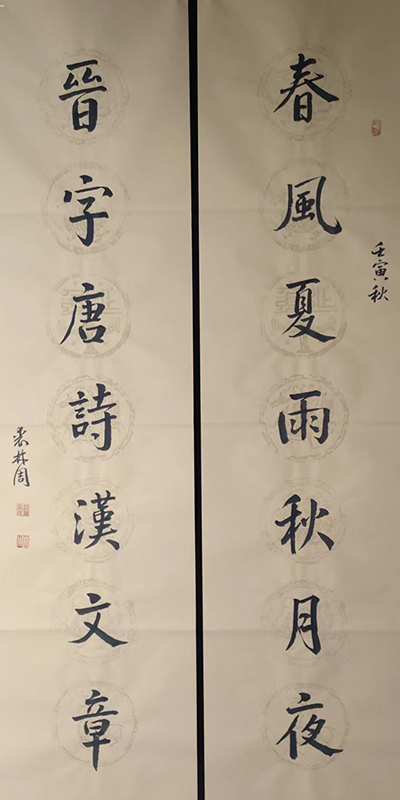 壬寅秋
春風夏雨秋月夜
晉字唐詩漢文章
林周